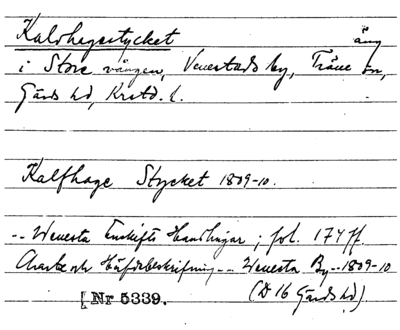 Kalvhagestycket äng
i Stora vången, Venestads by, Träne sn,
Gärds hd, Krstd. l.
Kalfhage Stycket 1809-10.
-- Wenesta Enskifts Handlingar; fol. 174 ff.
Charte och Häfdebeskrifning -- Wenesta By -- 1809-10
[Nr 5339. (D 16 Gärds hd).